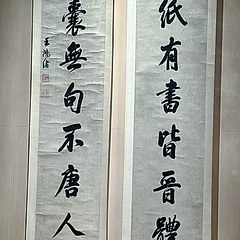 紙有書皆晉體
囊無句不唐人
王鴻緒